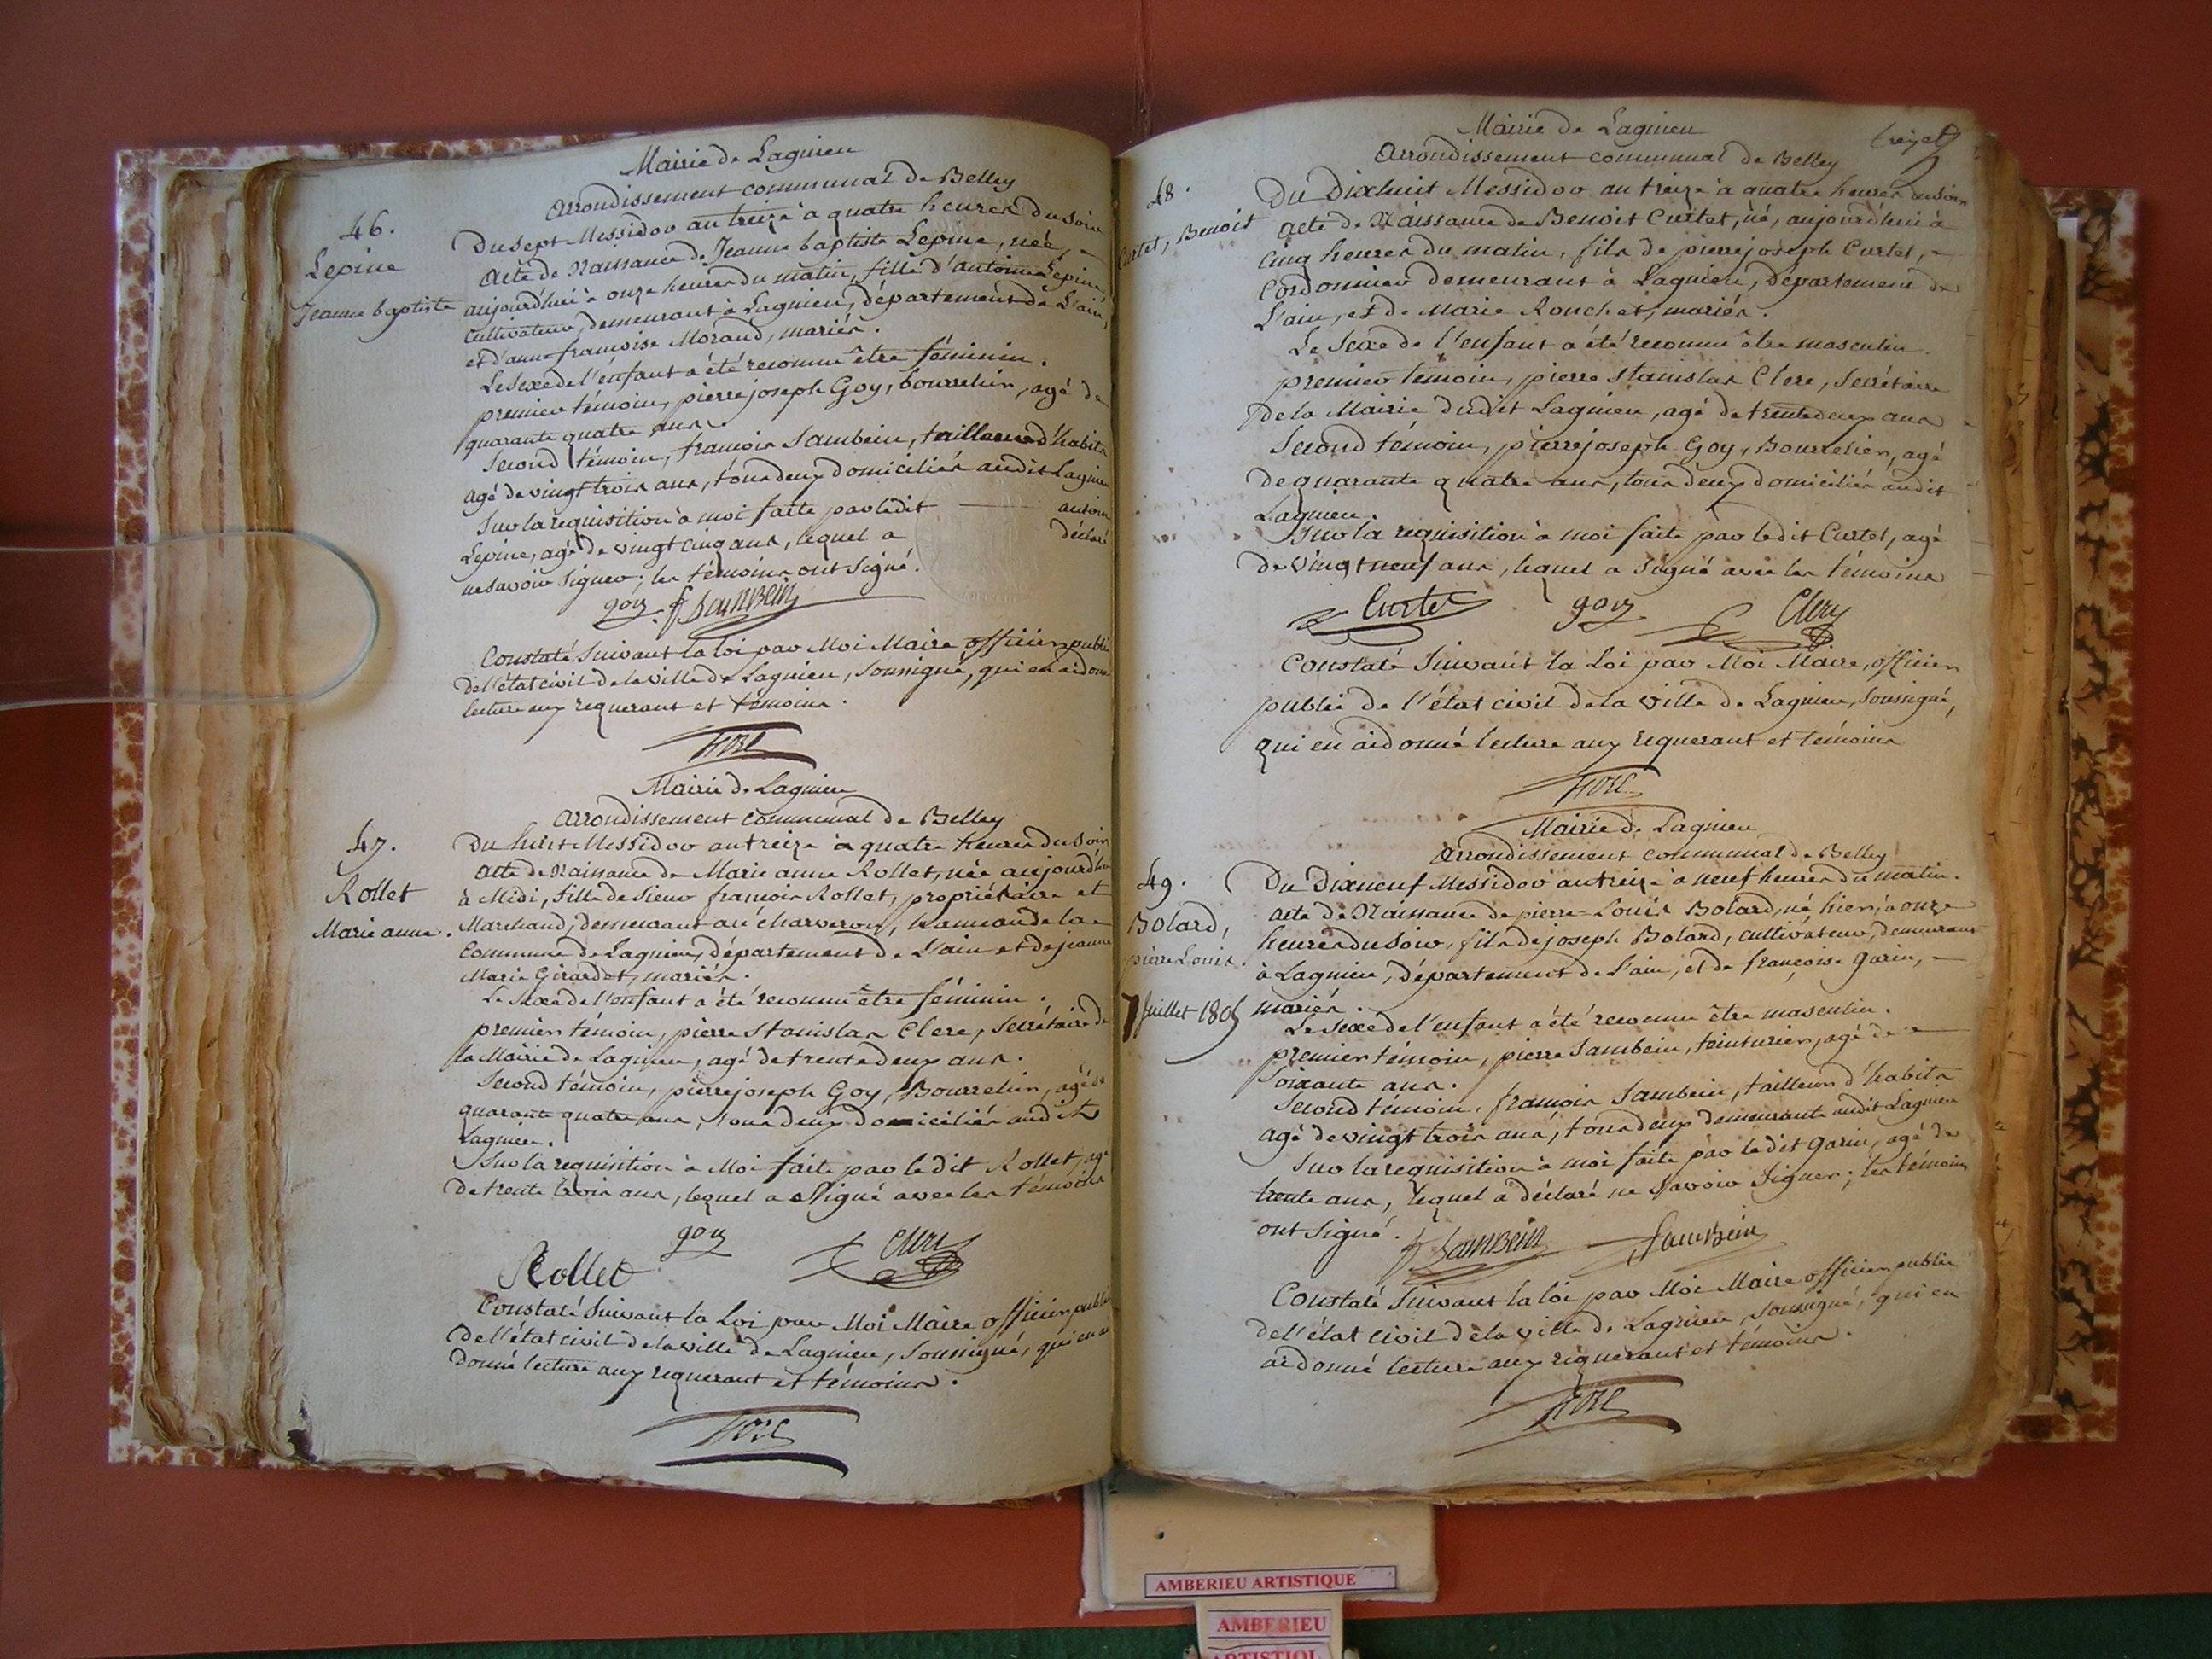 Mairie de Lagnieu
Arrondissement communal de Belley
46.
Lepine
Jeanne baptiste
Du sept Messidor an treize à quatre heures du soir
Acte de Naissance de Jeanne baptiste Lepine, née,
aujourd'hui à onze heures du matin, fille d'antoine Lepine
Cultivateur, demeurant à Lagnieu, département de L'ain,
et d'anne françoise Morand, mariés.
Le Sexe de l'enfant a été reconnu être féminin.
premier témoin, pierre joseph Goy, bourrelier, agé de
quarante quatre ans.
Second témoin, françois Sambein, tailleur d'habits
agé de vingt trois ans, tous deux domiciliés audit Lagnieu
Sur la requisition à moi faite par ledit antoine
Lepine, agé de vingt cinq ans, lequel a déclaré
ne savoir signer; les témoins ont signé.
goy f Sambein
Constaté Suivant la loi par Moi Maire officier public
de l'état civil de la ville de Lagnieu, Soussigné, qui en ai donné
lecture aux requerant et témoins.
Mairie de Lagnieu
Arrondissement communal de Belley
47.
Rollet
Marie anne.
Du huit Messidor an treize à quatre heures du Soir
Acte de Naissance de Marie anne Rollet, née aujourd'hui
à Midi, fille de Sieur françois Rollet, propriétaire et
Marchand, demeurant au charveron, hameau de la
Commune de Lagnieu, département de L'ain et de jeanne
Marie Girardet, mariés.
Le Sexe de l'enfant a été reconnu être féminin.
premier témoin, pierre Stanislas Clerc, Secrétaire de
la Mairie de Lagnieu, agé de trente deux ans.
Second témoin, pierre joseph Goy, Bourrelier, agé de
quarante quatre ans, tous deux domiciliés audit
Lagnieu.
Sur la requisition à Moi faite par le dit Rollet, agé
de trente trois ans, lequel a Signé avec les témoins
goy Clerc
Rollet
Constaté Suivant la Loi par Moi Maire officier public
de l'état civil de la ville de Lagnieu, Soussigné, qui en ai
donné lecture aux requerant et témoins.
Mairie de Lagnieu
Arrondissement communal de Belley
48.
Curtet, Benoit
Du Dixhuit Messidor an treize à quatre heures du soir
Acte de Naissance de Benoit Curtet, né, aujourd'hui à
cinq heures du matin, fils de pierre joseph Curtet,
Cordonnier demeurant à Lagnieu, département de
L'ain, et de Marie Ronchet, mariés.
Le Sexe de l'enfant a été reconnu être masculin.
premier témoin, pierre Stanislas Clerc, Secrétaire
de la Mairie dudit Lagnieu, agé de trente deux ans
Second témoin, pierre joseph Goy, Bourrelier, agé
de quarante quatre ans, tous deux domiciliés audit
Lagnieu.
Sur la requisition à moi faite par le dit Curtet, agé
de vingt neuf ans, lequel a signé avec les témoins
Curtet goy Clerc
Constaté Suivant la Loi par Moi Maire, officier
public de l'état civil de la ville de Lagnieu, Soussigné,
qui en ai donné lecture aux requerant et témoins
Mairie de Lagnieu
Arrondissement communal de Belley
49.
Bolard,
pierre Louis.
7 Juillet 1805
Du Dixneuf Messidor an treize à neuf heures du matin.
Acte de Naissance de pierre-Louis Bolard, né hier, à onze
heures du soir, fils de joseph Bolard, cultivateur, demeurant
à Lagnieu, département de l'ain, et de françoise garin,
mariés.
Le Sexe de l'enfant a été reconnu être masculin.
premier témoin, pierre Sambein, teinturier, agé de
Soixante ans.
Second témoin, françois Sambein, tailleur d'habits
agé de vingt trois ans, tous deux demeurants audit Lagnieu
Sur la requisition à moi faite par le dit garin, agé de
trente ans, lequel a déclaré ne Savoir Signer; les témoins
ont signé.
f Sambein Sambein
Constaté Suivant la loi par Moi Maire officier public
de l'état civil de la ville de Lagnieu, soussigné, qui en
ai donné lecture aux requerant et témoins.
AMBERIEU ARTISTIQUE
AMBERIEU